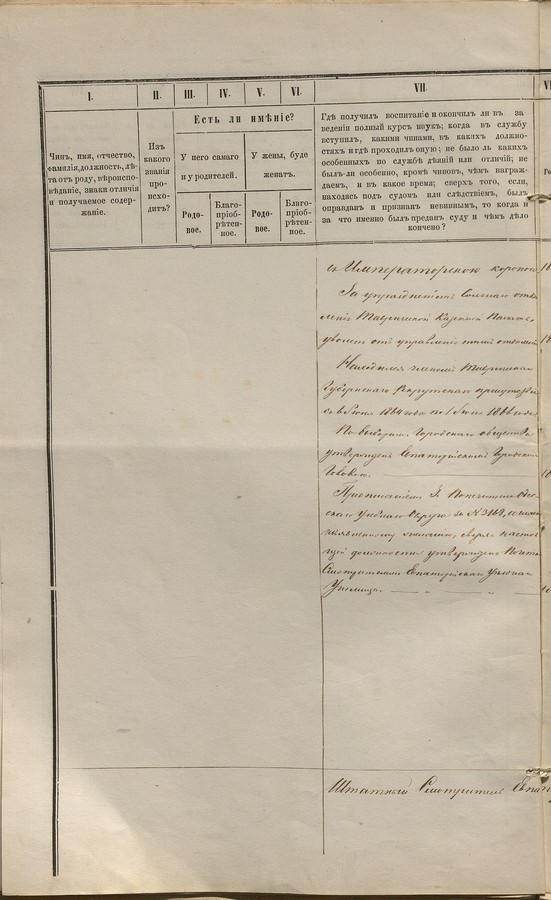 I.
II.
III.
IV.
V.
VI.
VII.
Чинъ, имя, отчество,
фамилія, должность, лѣ-
та отъ роду, вѣроиспо-
вѣданіе, знаки отличія
и получаемое содер-
жаніе.
Изъ
какого
званія
про-
исхо-
дитъ?
Есть ли имѣніе?
У него самаго
и у родителей.
У жены, буде
женатъ.
Родо-
вое.
Благо-
пріоб-
рѣтен-
ное.
Родо-
вое.
Благо-
пріоб-
рѣтен-
ное.
Гдѣ получилъ воспитаніе и окончилъ ли въ за
веденіи полный курсъ наукъ; когда въ службу
вступилъ, какими чинами, въ какихъ должно-
стяхъ и гдѣ проходилъ оную; не было ль какихъ
особенныхъ по службѣ дѣяній или отличій; не
былъ-ли особенно, кромѣ чиновъ, чѣмъ награж-
даемъ, и въ какое время; сверхъ того, если,
находясь подъ судомъ или слѣдствіемъ, былъ
оправданъ и признанъ невиннымъ, то когда и
за что именно былъ преданъ суду и чѣмъ дѣло
кончено?
съ Императорскою короной
За упраздненіемъ Солянаго отдѣ
ленія Таврической Казенной Палаты
уволенъ отъ управленія этимъ отдѣленіемъ
Находился членомъ Таврическаго
Губернскаго Рекрутскаго присутствія
По выборамъ Городскаго общества
утвержденъ Евпаторійскимъ Городскимъ
Головою.
Предписаніемъ Г. Попечителя Одес
скаго Учебнаго Округа за № 3164,
изъявленному желанію, сверхъ настоя
щей должности утвержденъ Почетн
Смотрителемъ Евпаторійскаго Уѣзднаго
Училища.
Штатный Смотритель Евпат